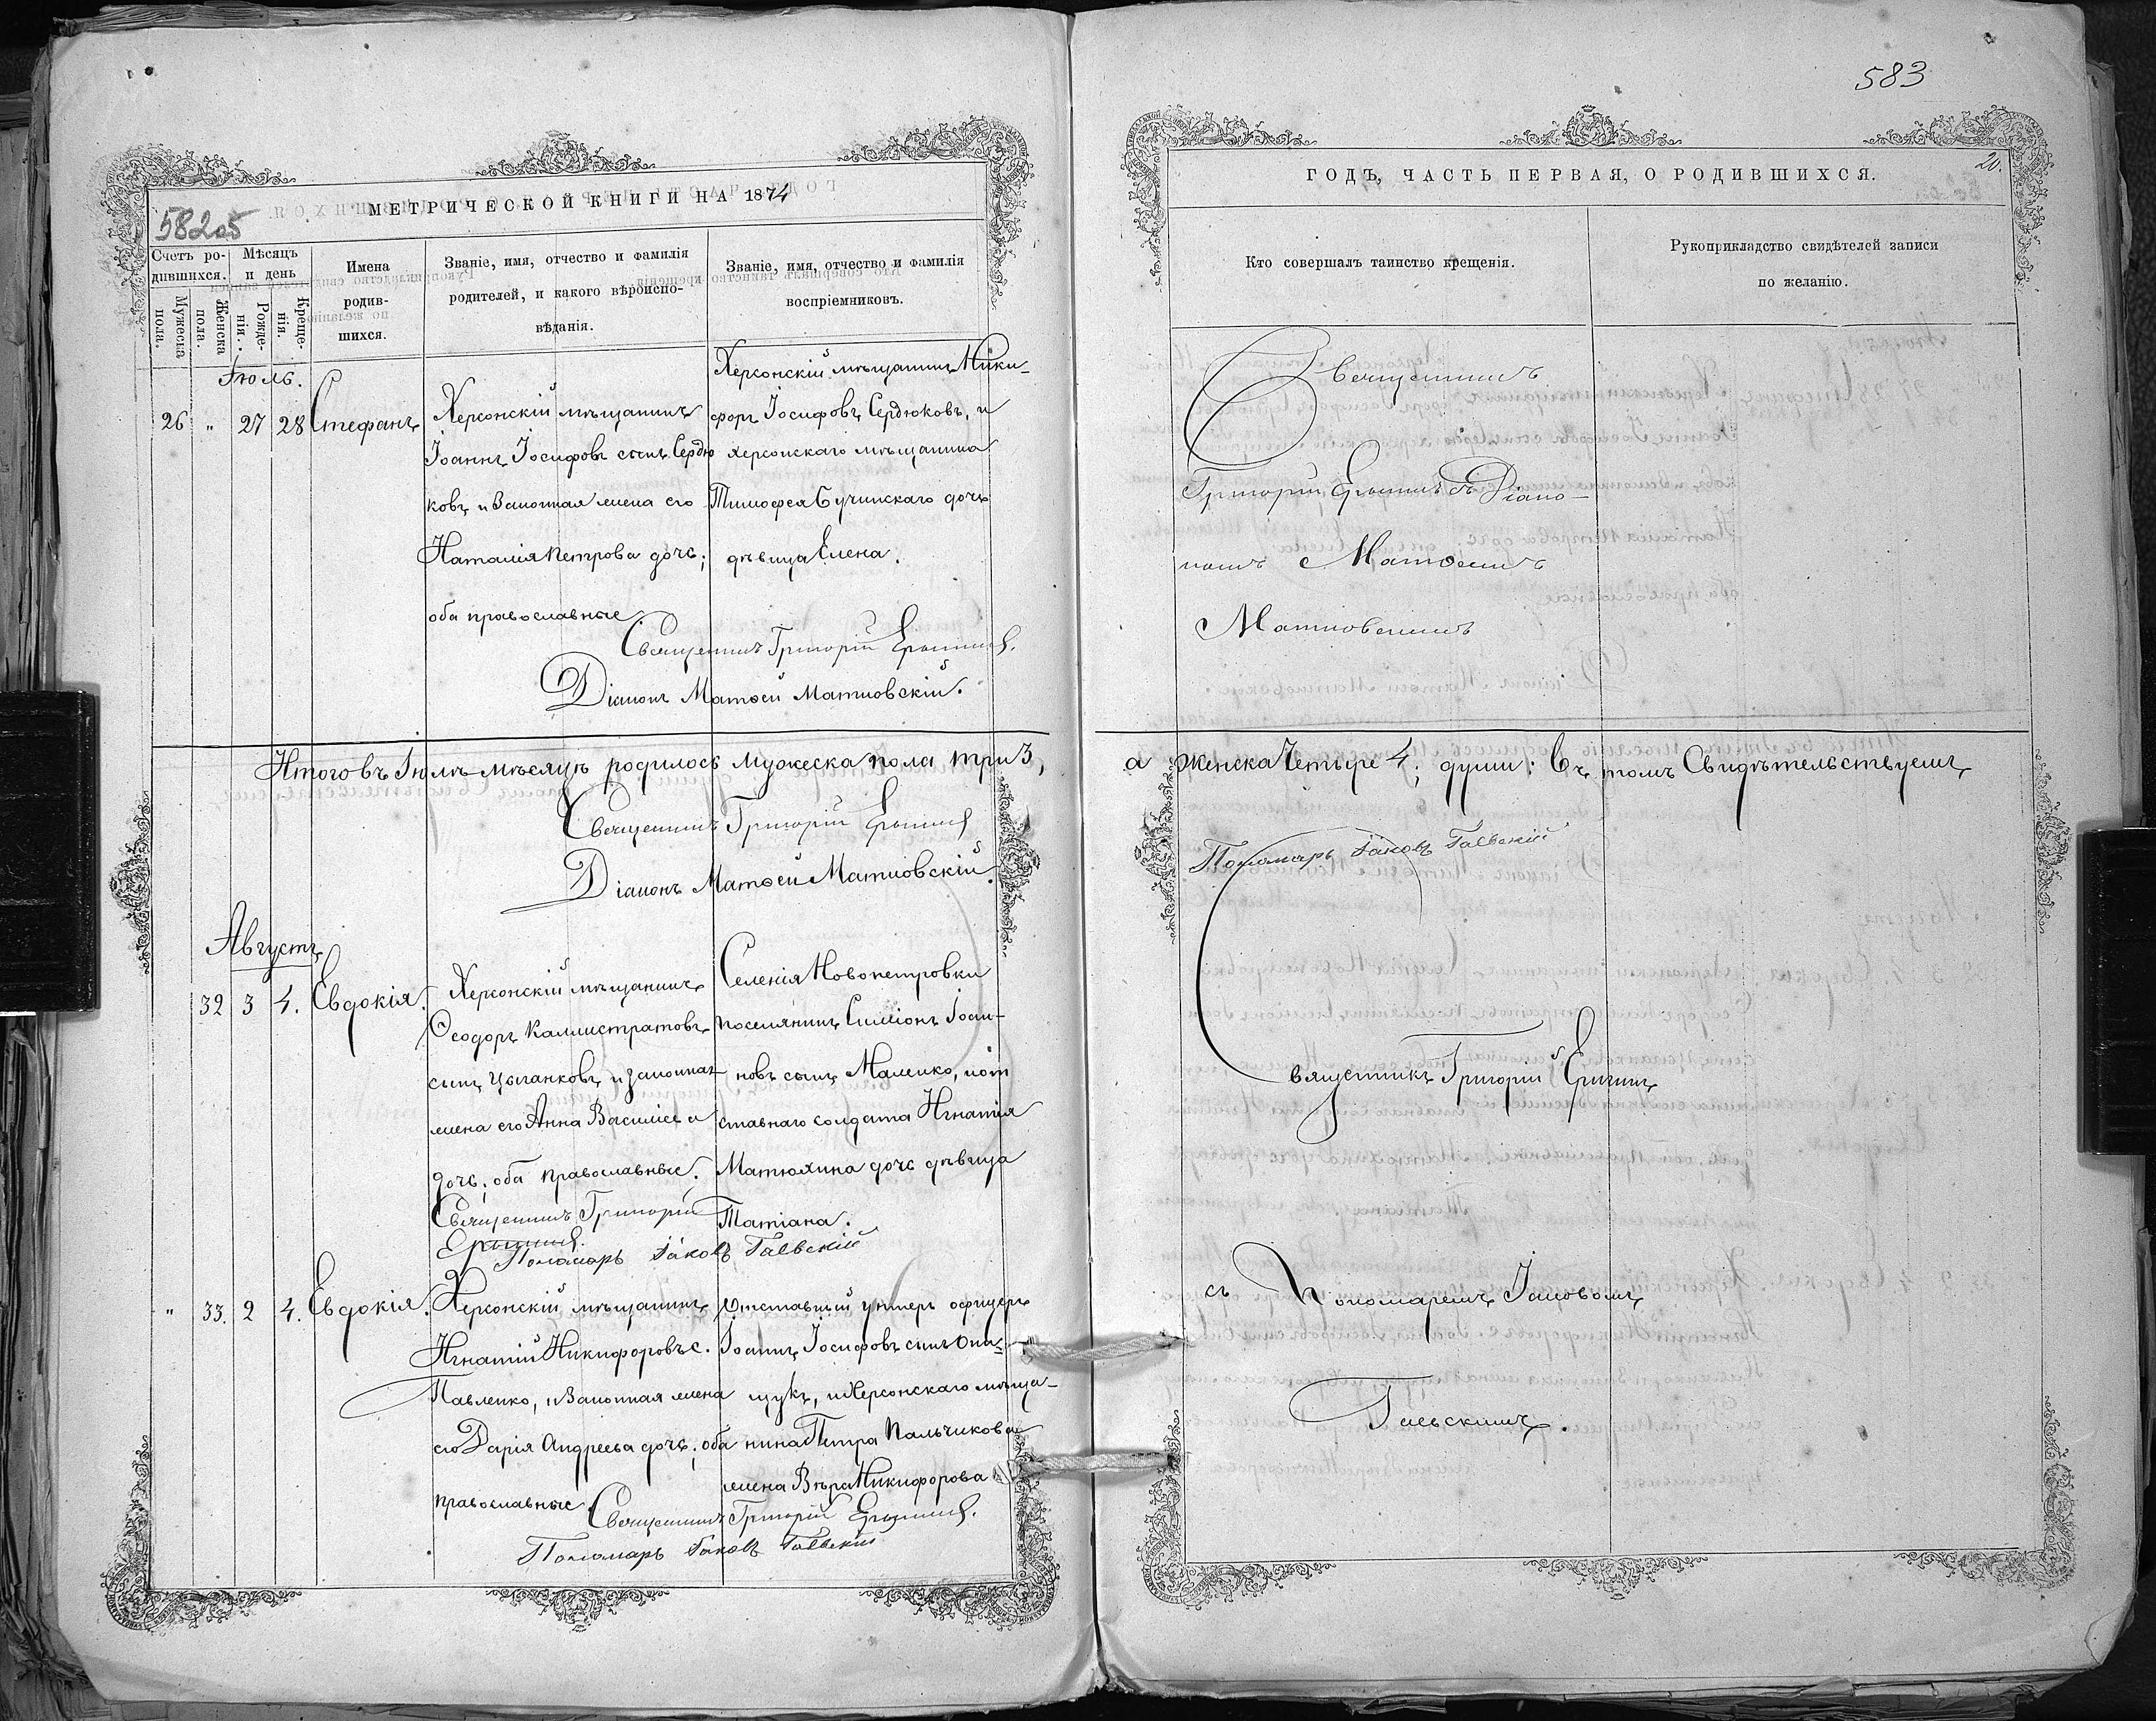 МЕТРИЧЕСКОЙ КНИГИ НА 1874
582об
Счетъ ро-
дившихся.
Мужеска
пола.
Женска
пола.
Мѣсяцъ
и день
Рожде-
нія.
Креще-
нія.
Имена
родив-
шихся.
Званіе, имя, отчество и фамилія
родителей, и какого вѣроиспо-
вѣданія.
Званіе, имя, отчество и фамилія
воспріемниковъ.
Іюль.
26 " 27 28 Стефанъ
Херсонскій мѣщанинъ
Іоаннъ Іосифовъ сынъ Сердю
ковъ и Законная жена его
Наталія Петрова дочь;
оба православные
Херсонскій мѣщанинъ Ники-
форъ Іосифовъ Сердюковъ, и
херсонскаго мѣщанина
Тимофея Бучинскаго дочь
дѣвица Елена.
Священникъ Григорій
Діаконъ Матѳей Матковскій.
Итого въ Іюлѣ мѣсяцѣ родилось мужеска пола три 3,
Священникъ Григорій
Діаконъ Матѳей Матковскій.
Августъ
32 3 4. Евдокія.
Херсонскій мѣщанинъ
Ѳеодоръ Каллистратовъ
сынъ Цыганковъ и законная
жена его Анна Василіева
дочь; оба православные.
Священникъ Григорій
Пономарь Іаковъ Гаевскій
Селенія Новопетровки
поселянинъ Симеонъ Іоан-
новъ сынъ Маленко, и от
ставнаго солдата Игнатія
Матюхина дочь дѣвица
Татіана.
" 33. 2 4. Евдокія.
Херсонскій мѣщанинъ
Игнатій Никифоровъ с.
Павленко, и Законная жена
его Дарія Андреева дочь; оба
православные.
Отставный унтеръ офицеръ
Іоаннъ Іосифовъ сынъ Опа-
щукъ, и Херсонскаго мѣща-
нина Петра Пальчикова
жена Вѣра Никифорова
Священникъ Григорій
Пономарь Іаковъ Гаевскій
583
20.
ГОДЪ, ЧАСТЬ ПЕРВАЯ, О РОДИВШИХСЯ.
Кто совершалъ таинство крещенія.
Рукоприкладство свидѣтелей записи
по желанію.
Священникъ
Григорій съ Діако-
номъ Матѳеемъ
Матковскимъ
а женска Четыре 4; души: Въ томъ Свидѣтельствуемъ
Пономарь Іаковъ Гаевскій
Священникъ Григорій
съ Пономаремъ Іаковомъ
Гаевскимъ.